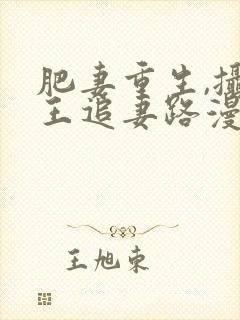 肥妻重生,攝
王追妻路漫
王旭东